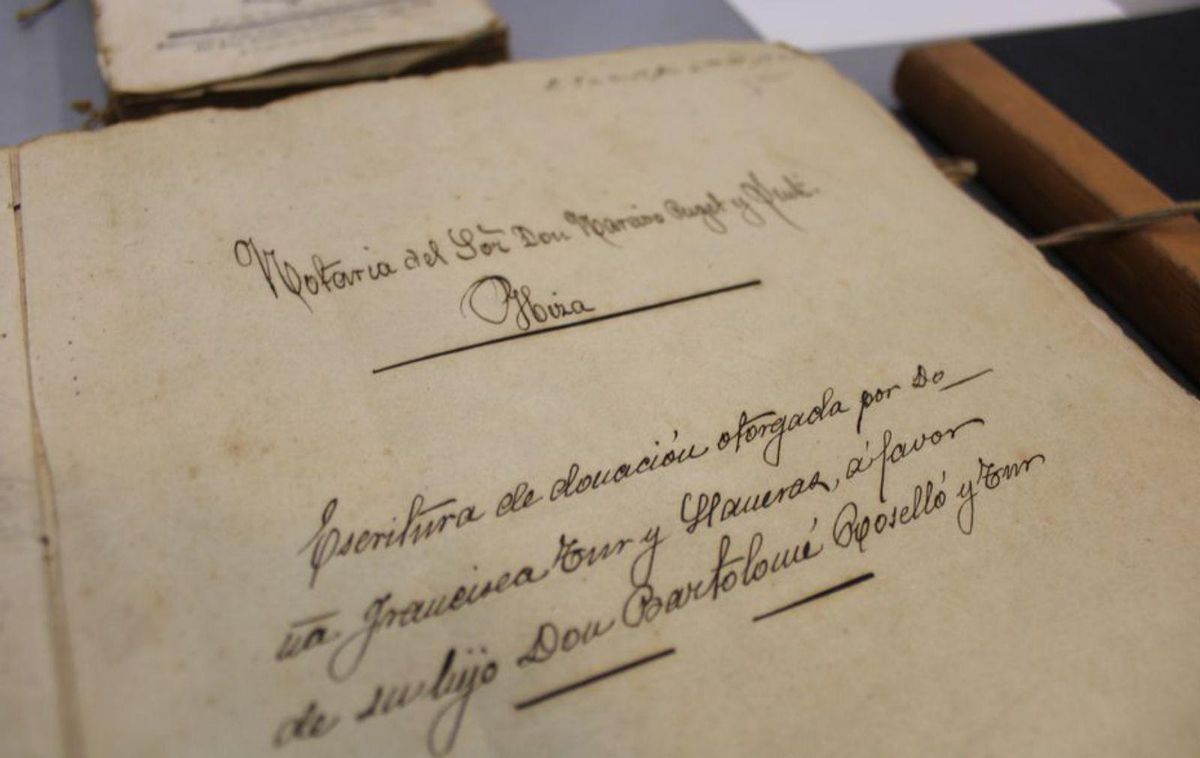 Notaria del Sor Don Narciso Puget y
Ibiza
Escritura de donación otorgada por Do
ña Francisca Tur y Llaneras, á favor
de su hijo Don Bartolomé Roselló y Tur